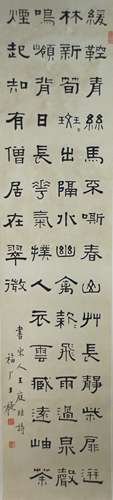 緩鞚青絲馬不嘶春山長靜柴扉迸
林新筍斑〻出隔水幽禽款〻飛雨過泉聲
鳴嶺背日長華氣撲人衣雲藏遠岫茶
煙起知有僧居在翠微
書宋人王庭珪詩
福厂王禔